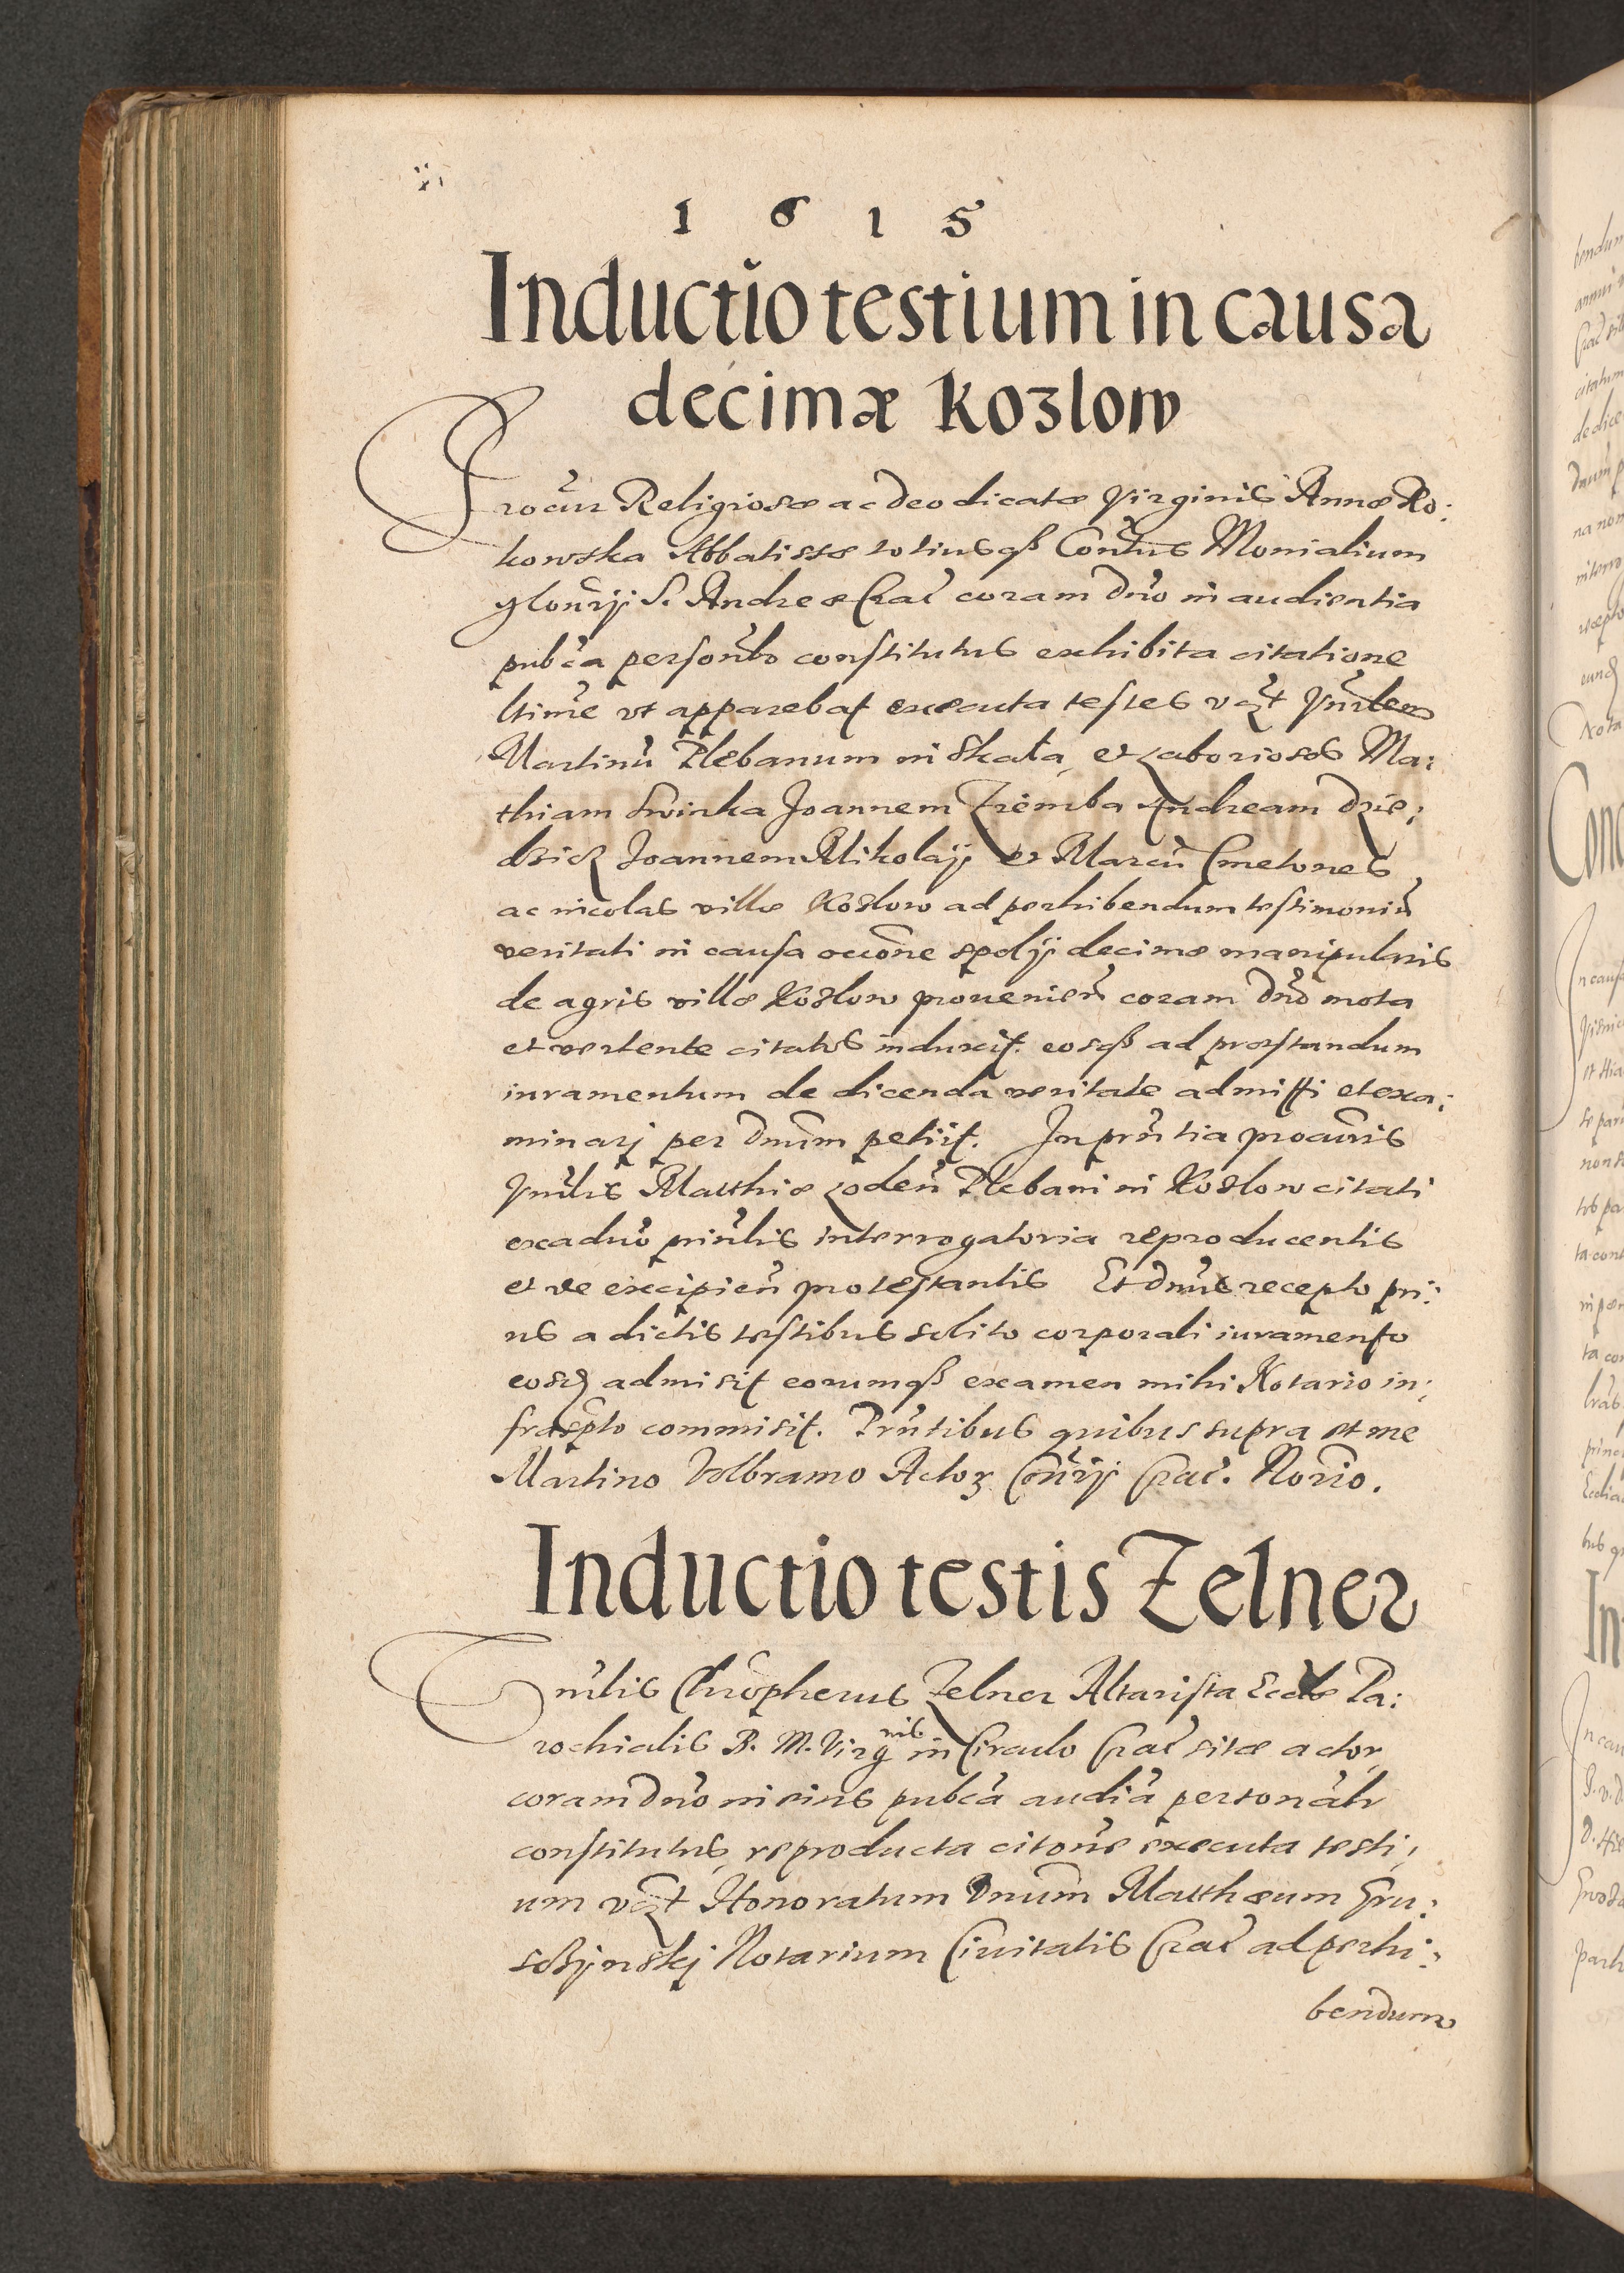 1 6 1 5
Inductio testium in causa
decimæ Kozlow
Procur Religiosæ ac deo dicatæ Virginis Annæ Ro:
kowska Abbatissæ totiusqß Contus Monialium
S. Andreæ Crac coram dno in audientia
pubca personlr constitutus exhibita citatione
ltime vt apparebat executa testes vczt
Martinu Plebanum in Skala, et Laboriosos Ma:
thiam Swinka Joannem Trzemba Andream Dzie:
dzicz Joannem Mikolaij et Marcu Cmetones
ac incolas villæ Kozlow ad perhibendum testimoniu
veritati in causa occone spolij decimæ manipularis
de agris villæ Kozlow prouenien coram dno mota
et vertente citatos induxit. eosqß ad præstandum
iuramentum de dicenda veritate admitti et exa:
minarj per dnum petiit. In pntia procuris
Vnlis Matthiæ Plebani in Kozlow citati
ex aduo interrogatoria reproducentis
et de excipien protestantis Et dnus recepto pri:
us a dictis testibus solito corporali iuramento
eosd admisit eorumqß examen mihi Notario in:
frascpto commisit. Pntibus quibus supra et me
Martino Volbramo Actor Conrij Crac. Norio.
Inductio testis Zelner
Vnlis Chropherus Zelner Altarista Eccl Pa:
rochialis B. M. Virg nis in Circulo Crac sitæ actor
coram dno in eius pubca audia personalr
constitutus, reproducta citone executa testi:
um vczt Honoratum Dnum Matthæum Gru:
schijnskj Notarium Ciuitatis Crac ad perhi:
bendum